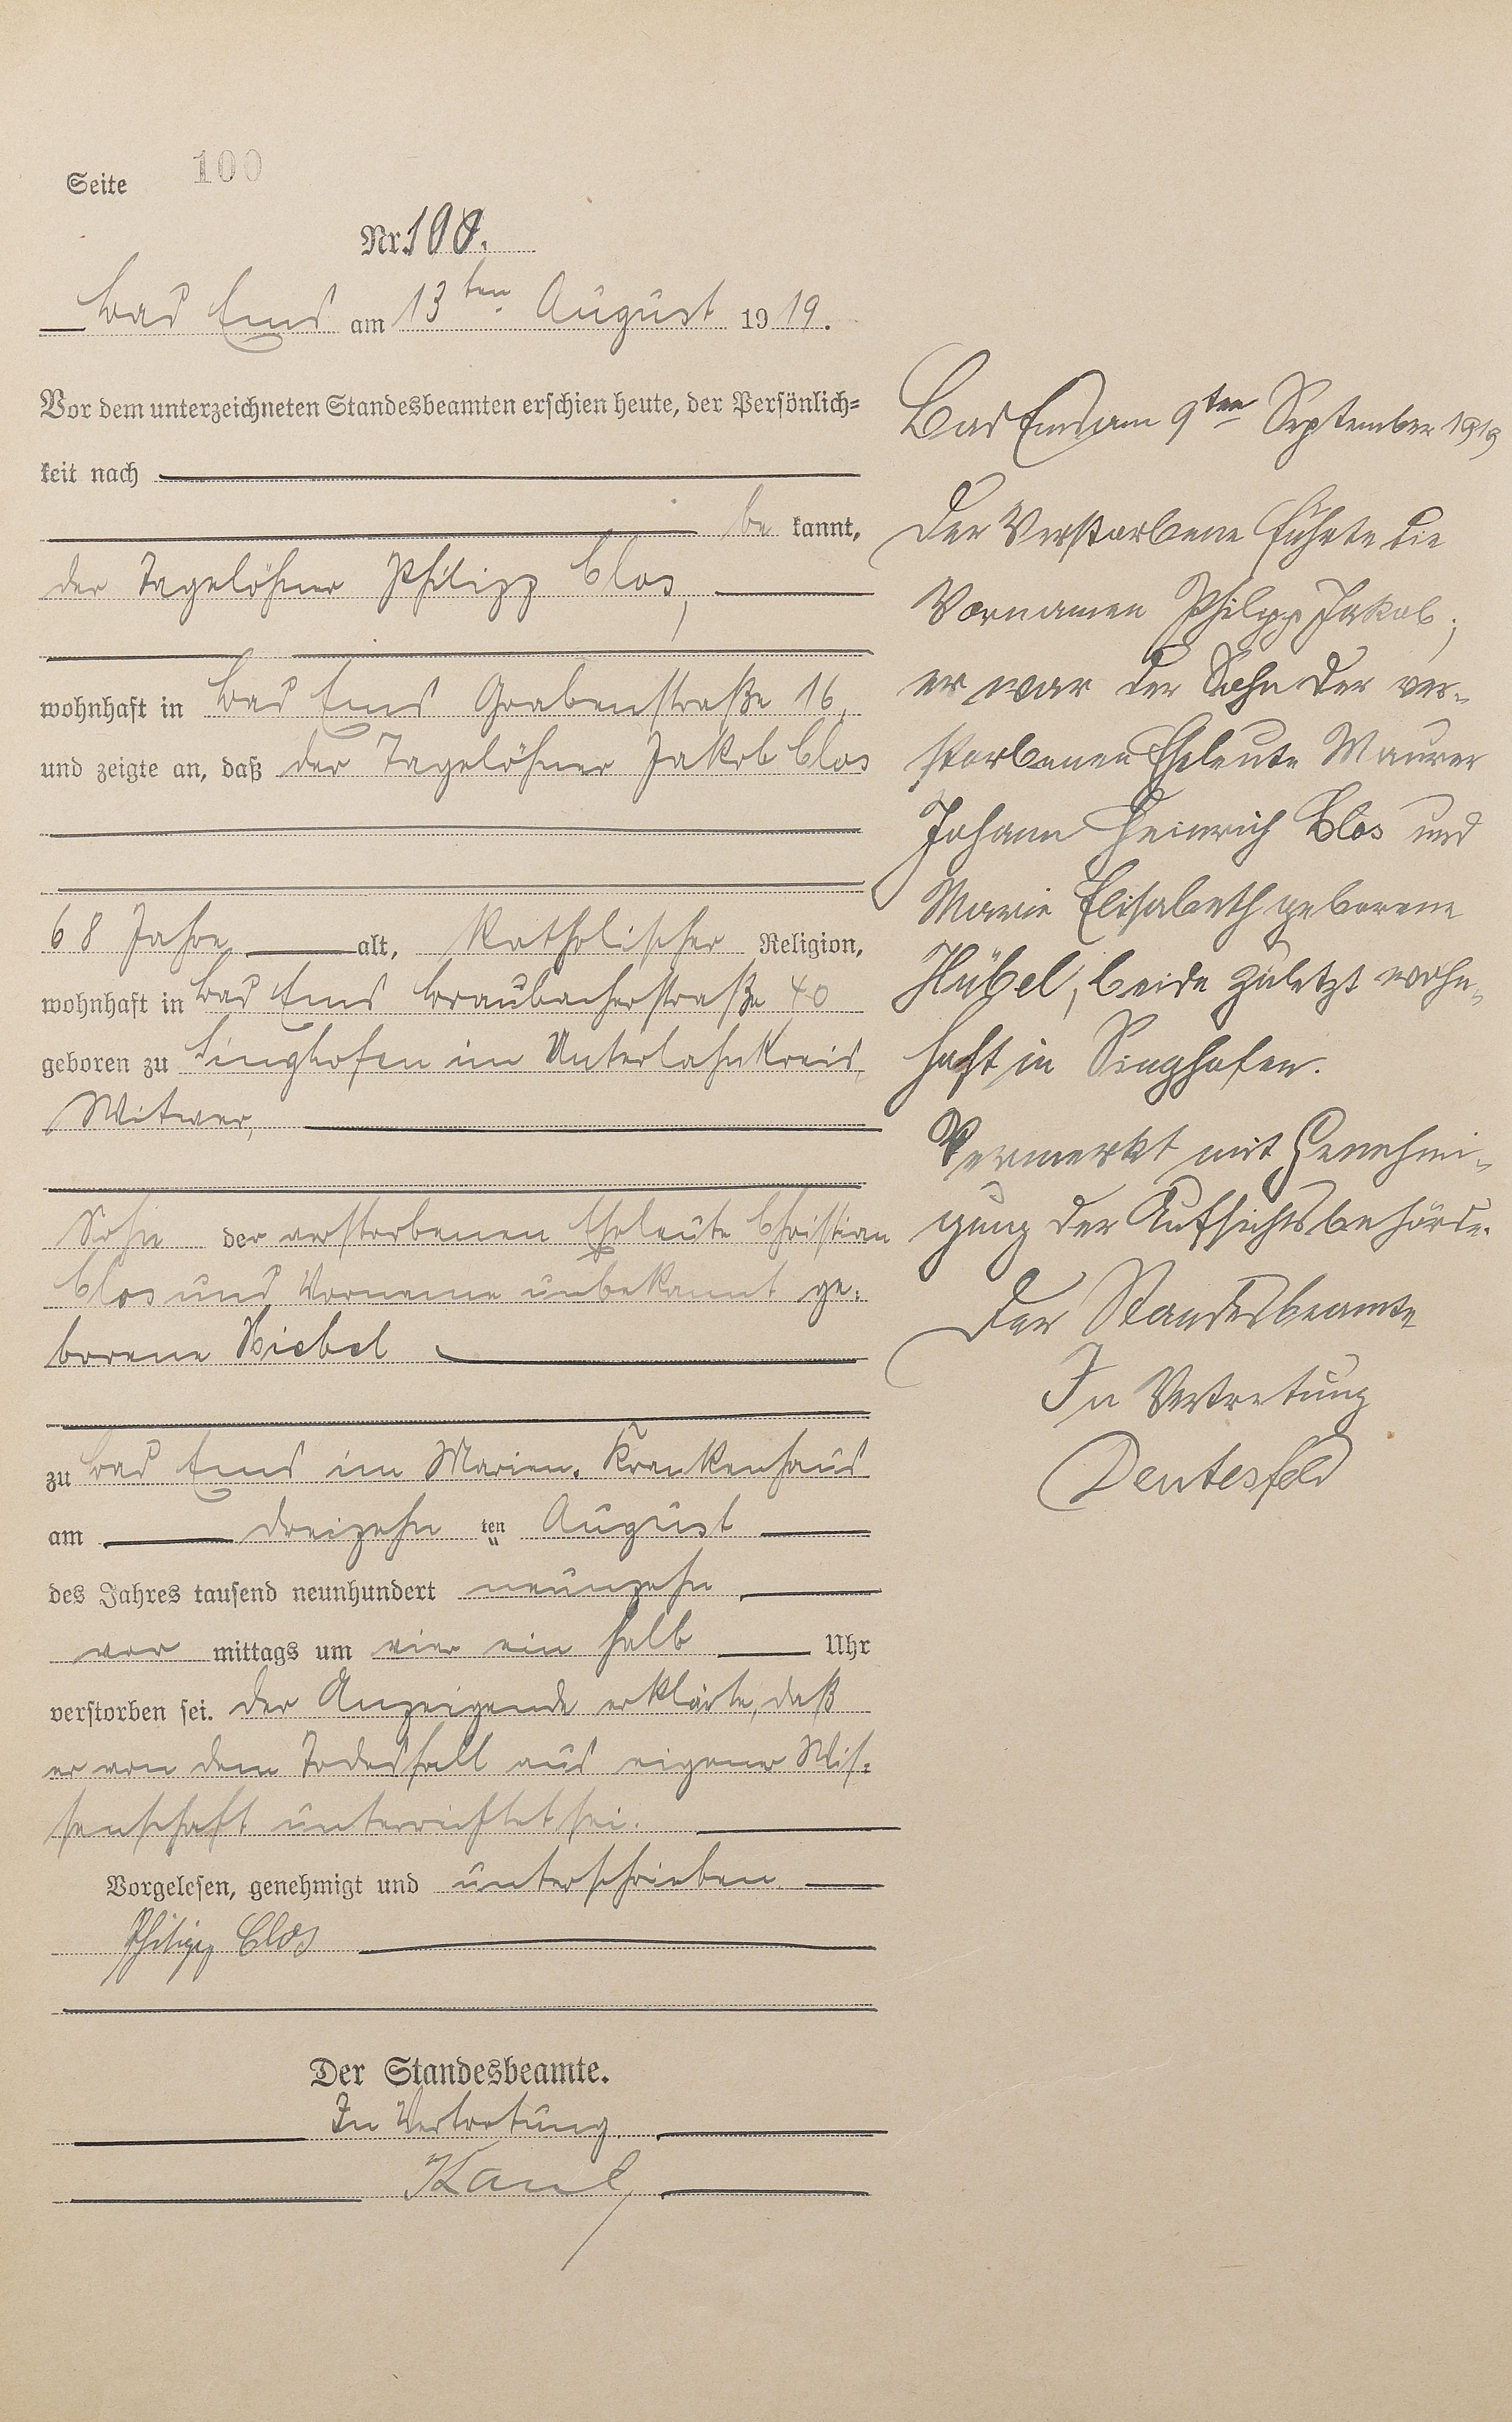 Seite 100
Nr. 100.
Bad Ems am 13ten August 1919.
Vor dem unterzeichneten Standesbeamten erschien heute, der Persönlich=
keit nach
be kannt,
der Tagelöhner Philipp Clos,
wohnhaft in Bad Ems Grabenstraße 16,
und zeigte an, daß der Tagelöhner Jakob Clos
68 Jahre alt, katholischer Religion,
wohnhaft in Bad Ems Braubacherstraße 40
geboren zu Singhofen im Unterlahnkreis,
Witwer,
Sohn der verstorbenen Eheleute Christian
Clos und Vorname unbekannt ge=
borene Hiebel
zu Bad Ems im Marien-Krankenhaus
am dreizehn ten August
des Jahres tausend neunhundert neunzehn
vor mittags um vier ein halb Uhr
verstorben sei. Der Anzeigende erklärte, daß
er von dem Todesfall aus eigener Wis=
senschaft unterrichtet sei.
Vorgelesen, genehmigt und unterschrieben
Philipp Clos
Der Standesbeamte.
In Vertretung.
Kaul
Bad Ems am 9ten September 1919
Der Verstorbene führte die
Vornamen Philipp Jakob;
er war der Sohn der ver=
storbenen Eheleute Maurer
Johann Heinrich Clos und
Marie Elisabeth geborene
Hübel, beide zuletzt wohn=
haft in Singhofen.
Vermerkt mit Genehmi=
gung der Aufsichtsbehörde.
Der Standesbeamte
In Vertretung
Deutesfeld